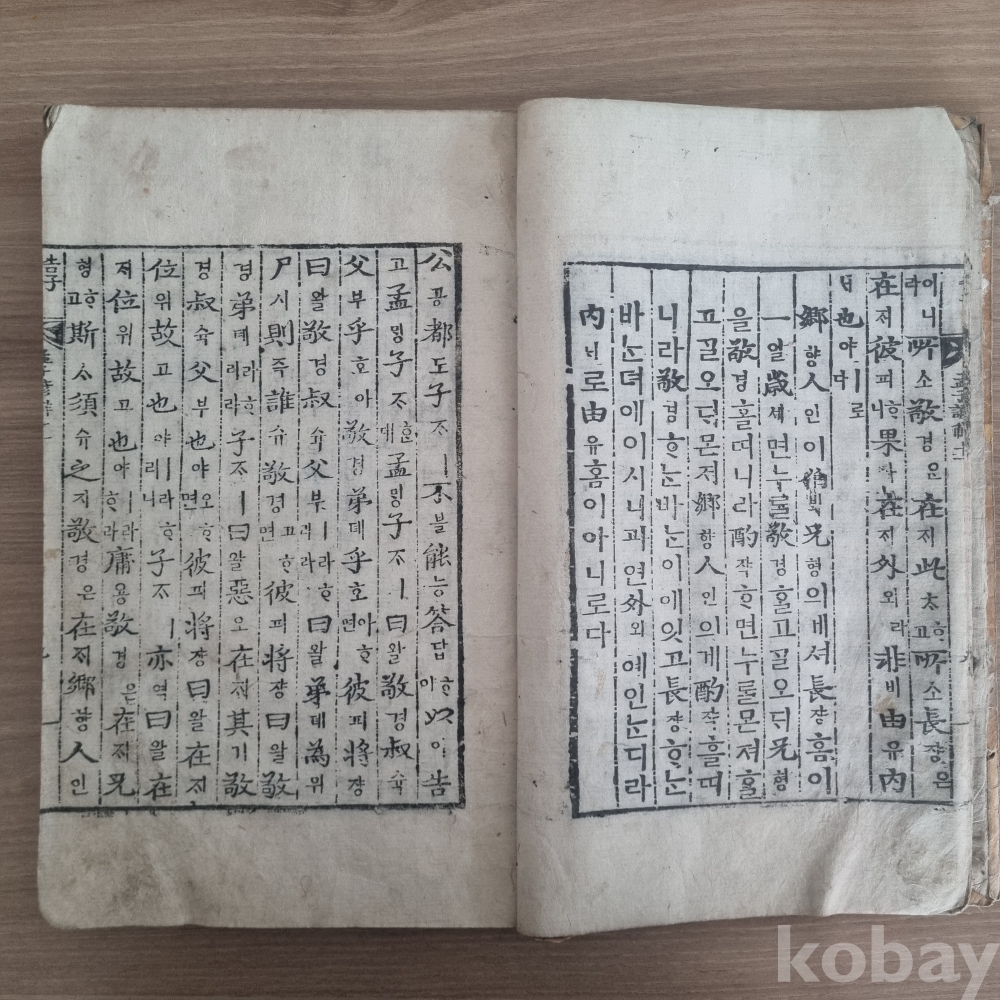 이니라所소敬경은在ᄌᆡ此ᄎᆞᄒᆞ고所소長쟝은
在ᄌᆡ彼피ᄒᆞ니果과在ᄌᆡ外외라非비由유內
ᄂᆡ也야ㅣ로다
鄕향人인이伯ᄇᆡᆨ兄형의비셔長쟝홈이
一일歲셰면누를敬경ᄒᆞᆯ고ᄀᆞᆯ오ᄃᆡ兄형
을敬경ᄒᆞᆯ띠니라酌쟉ᄒᆞ면누를몬져ᄒᆞᆯ
고ᄀᆞᆯ오ᄃᆡ몬져鄕향人인의게酌쟉ᄒᆞᆯ띠
니라敬경ᄒᆞᄂᆞᆫ바ᄂᆞᆫ이에잇고長쟝ᄒᆞᄂᆞᆫ
바ᄂᆞᆫ뎌에이시니과연外외예인ᄂᆞᆫ디라
內ᄂᆡ로由유홈이아니로다
公공都도子ᄌᆞㅣ不블能능答답ᄒᆞ야以이告
고孟ᄆᆡᆼ子ᄌᆞᄒᆞᆫ대孟ᄆᆡᆼ子ᄌᆞㅣ曰왈敬경叔슉
父부乎호아敬경弟뎨乎호아ᄒᆞ면彼피將쟝
曰왈敬경叔슉父부ㅣ라ᄒᆞ리라曰왈弟뎨為위
尸시則즉誰슈敬경고ᄒᆞ면彼피將쟝曰왈敬
경弟뎨라ᄒᆞ리라子ᄌᆞㅣ曰왈惡오在ᄌᆡ其기敬
경叔슉父부也야오ᄒᆞ면彼피將쟝曰왈在ᄌᆡ
位위故고也야ㅣ라ᄒᆞ리니子ᄌᆞㅣ亦역曰왈在
ᄌᆡ位위故고也야ㅣ라ᄒᆞ라庸용敬경은在ᄌᆡ兄
형ᄒᆞ고斯ᄉᆞ須슈之지敬경은在ᄌᆡ鄕향人인
告子
kobay